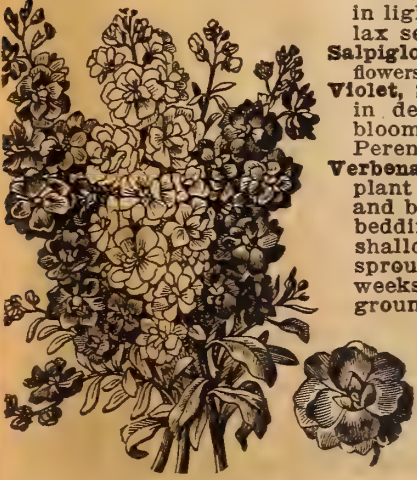 in ligh
lax se
Salpiglo
flowers
Violet,
in de
bloom
Peren
Verbena
plant
and b
beddin
shallo
sprou
weeks
groun